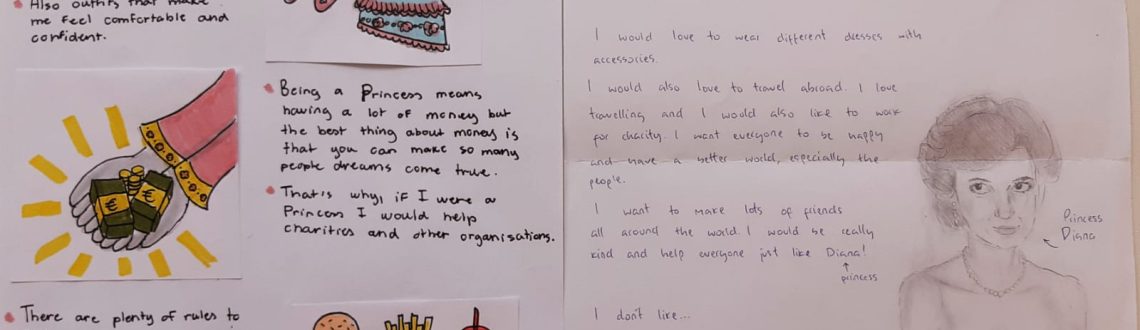 Also outfits that make
me feel comfortable and
confident.
Being a Princess means
having a lot of money but
the best thing about money is
that you can make so many
people dreams come true.
That's why, if I were a
Princess I would help
charities and other organisations.
€
€
There are plenty of rules to
I would love to wear different dresses with
accessories.
I would also love to travel abroad. I love
travelling and I would also like to work
for charity. I want everyone to be happy
and have a better world, especially the
people.
I want to make lots of friends
all around the world. I would be really
kind and help everyone just like Diana!
princess
Princess
Diana
I don't like...